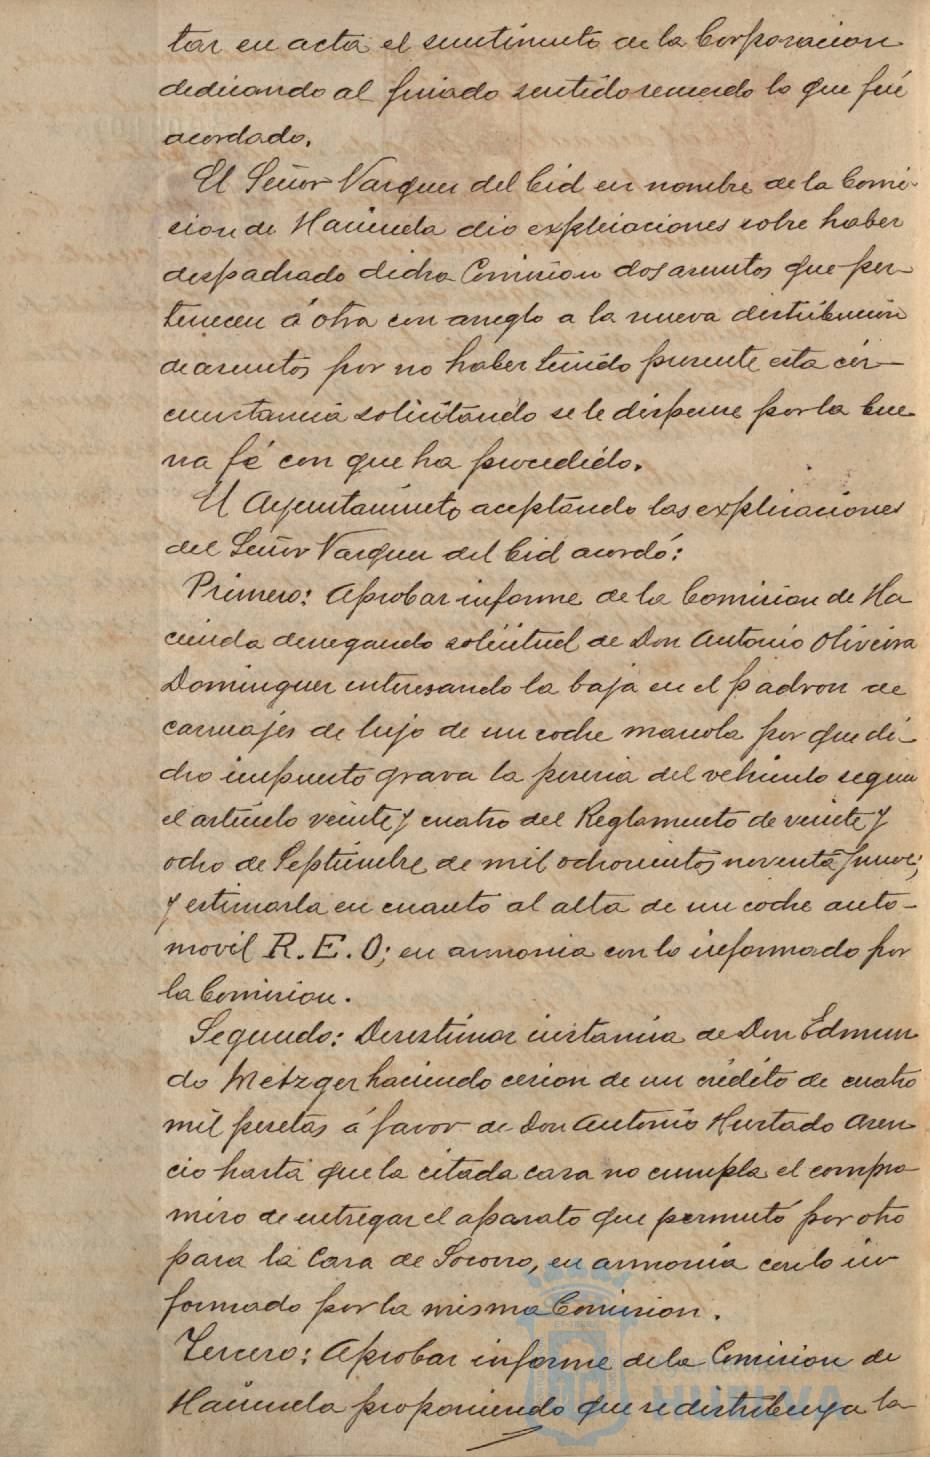 tar en acta el sentimiento de la Corporacion
dedicando al finado sentido recuerdo lo que fué
acordado.
El Señor Vazquez del Cid en nombre de la Comi-
sion de Hacienda dio explicaciones sobre haber
despachado dicha Comision dos asuntos que per-
tenecen á otra con arreglo a la nueva distribucion
de asuntos por no haber tenido presente esta cir-
cunstancia solicitando se le dispense por la bue
na fé con que ha procedido.
El Ayuntamiento aceptando las explicaciones
del Señor Vazquez del Cid acordó:
Primero: Aprobar informe de la Comision de Ha
cienda denegando solicitud de Don Antonio Oliveira
Dominguez interesando la baja en el padron de
carruajes de lujo de un coche manola por que di-
cho impuesto grava la posesia del vehiculo segun
el articulo veinte y cuatro del Reglamento de veinte y
ocho de Septiembre de mil ochocientos noventa y nueve;
y estimarla en cuanto al alta de un coche auto-
movil R.E.O; en armonia con lo informado por
la Comision.
Segundo: Desestimar instancia de Don Edmun
do Metzger haciendo cesion de un crédito de cuatro
mil pesetas á favor de Don Antonio Hurtado Asen
cio hasta que la citada casa no cumpla el compro
miso de entregar el aparato que permutó por otro
para la Casa de Socorro, en armonia con lo in
formado por la misma Comision.
Tercero: Aprobar informe de la Comision de
Hacienda proponiendo que se distribuya la
HUELVA